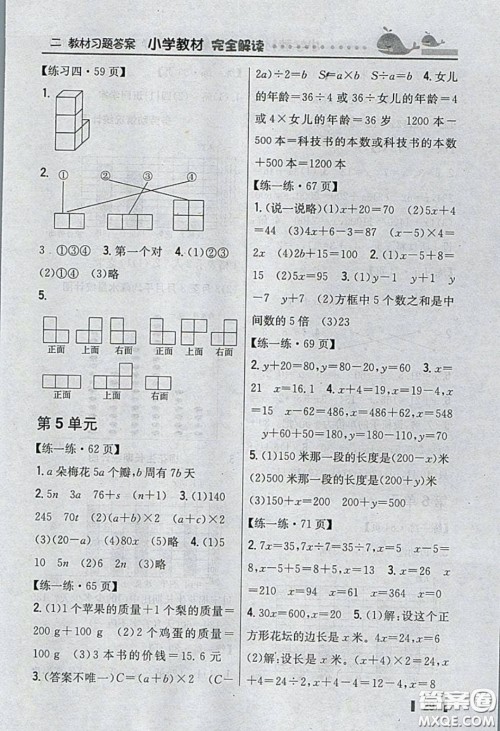 二 教材习题答案 小学教材 完全解读
【练习四·59页】
1.
2.
① ② ③ ④
3. ①③④ 3. 第一个对 4. (1)②③
(2)①③④ (3)略
5.
正面 上面 右面 正面 上面 右面
正面 上面 右面
第5单元
【练一练·62页】
1. a朵梅花5a个瓣,b周有7b天
2. 5n 3a 76+s (n+b) 3. (1)140
245 70t (2)(a+b)×2 (a+c)×2
4. (1)5n 10a 5. (1)6n (2)2n (3)略
【练一练·65页】
2. (1)1个苹果的质量+1个梨的质量=
200g+100g (2)2个鸡蛋的质量=
100g (3)3本书的价钱=15.6元
3. (答案不唯一)C=(a+b)×2 (C-
2a)÷2=b S=a×b S÷a=b 4. 女儿
的年龄=36÷4或36÷女儿的年龄=4
或4×女儿的年龄=36岁 1200本-
500本=科技书的本数或科技书的本数
+500本=1200本
【练一练·67页】
1. (说一说略)(1)x+20=70 (2)5x+4
=44 (3)4x+6-3=87 (x-5)×4=
2x (4)2b+15=100 2. (1)x+8=20
(2)5x=80 3. (1)y-1 y+1 y
-7 y+7 (2)方框中5个数之和是中
间数的5倍 (3)23
【练一练·69页】
2. y+20=80,y=80-20,y=60 3. x
=10 x=16.1 4. x=34 x=315
y=15 x=486 x=100 x=548
x=158 x=186+462=648
5. (1)150米那一段的长度是(200-x)米
(2)500米那一段的长度是(200+x)米
(3)200-x=150 200+x=500
【练一练·71页】
2. 7x=35,7x÷7=35÷7,x=5 3. x
=8 x=5 x=8 x=24 x=48
4. 30x=600 x=20 5. (1)解:设这个正
方形花坛的边长是x米。4x=24 x=6